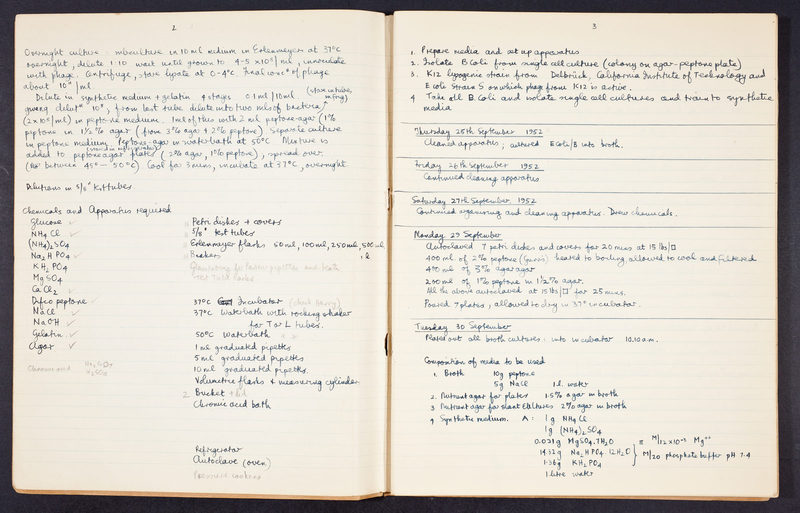 2
Overnight culture : subculture in 10ml medium in Erlenmeyer at 37°C
overnight, dilute 1:10 wait until grown to 4-5 x 10⁸/ml, innoculate
with phage. Centrifuge, store lysate at 0-4°C Final concⁿ of phage
about 10¹⁰/ml
Dilute in synthetic medium + gelatin 4 stages 0.1ml/10ml (store in tubes,
in frig)
giving dilutⁿ 10⁸, from last tube dilute into two mls of bacteria
(2x10⁸/ml) in peptone medium. 1ml of this with 2ml peptone-agar (1%
peptone in 1½% agar (from 3% agar + 2% peptone) Separate culture
in peptone medium. Peptone-agar in waterbath at 50°C Mixture is
added to peptone agar plates (2% agar, 1% peptone), spread over
(between 45°-50°C) Cool for 3 mins, incubate at 37°C, overnight.
Dilutions in 5/8" test tubes
Chemicals and Apparatus required
Glucose ✓
NH₄Cl ✓
(NH₄)₂SO₄ ✓
Na₂HPO₄ ✓
KH₂PO₄
MgSO₄
CaCl₂ ✓
Difco peptone ✓
NaCl ✓
NaOH ✓
Gelatin ✓
Agar ✓
Chromic acid
H₂SO₄
Petri dishes + covers
5/8" test tubes
Erlenmeyer flasks 50ml, 100ml, 250ml, 500ml,
Beakers
37°C Incubator
37°C Waterbath with rocking shaker
for T or L tubes.
50°C Waterbath
1ml graduated pipettes
5ml graduated pipettes
10ml graduated pipettes.
Volumetric flasks & measuring cylinder
2 Bucket + lid
Chromic acid bath
Refrigerator
Autoclave (oven)
Pressure cookers
3
1. Prepare media and set up apparatus
2. Isolate B Coli from single cell culture (colony on agar-peptone plate)
3. K12 lysogenic strain from Delbrück, California Institute of Technology and
E coli Strain S on which phage from K12 is active.
4 Take all B Coli and isolate single cell cultures and train to synthetic
media
Thursday 25th September 1952
Cleaned apparatus, cultured E Coli/B into broth.
Friday 26th September 1952
Continued cleaning apparatus
Saturday 27th September, 1952
Continued organising and cleaning apparatus. Drew chemicals.
Monday 29 September
Autoclaved 7 petri dishes and covers for 20 mins at 15 lbs/□
400 ml of 2% peptone heated to boiling, allowed to cool and filtered
400 ml of 3% agar agar
200 ml of 1% peptone in 1½% agar.
All the above autoclaved at 15 lbs/□" for 25 mins.
Poured 7 plates, allowed to dry in 37° incubator.
Tuesday 30 September
Plated out all broth cultures : into incubator 10.10 a.m.
Composition of media to be used
1. Broth 10g peptone
5g NaCl 1 l. water
2. Nutrient agar for plates 1.5% agar in broth
3 Nutrient agar for slant cultures 2% agar in broth
4 Synthetic medium. A: 1g NH₄Cl
1g (NH₄)₂SO₄
0.021g MgSO₄.7H₂O ≡ M/12x10⁻³ Mg⁺⁺
14.32g Na₂HPO₄ 12H₂O } M/20 phosphate buffer pH 7.4
1.36g KH₂PO₄
1 litre water